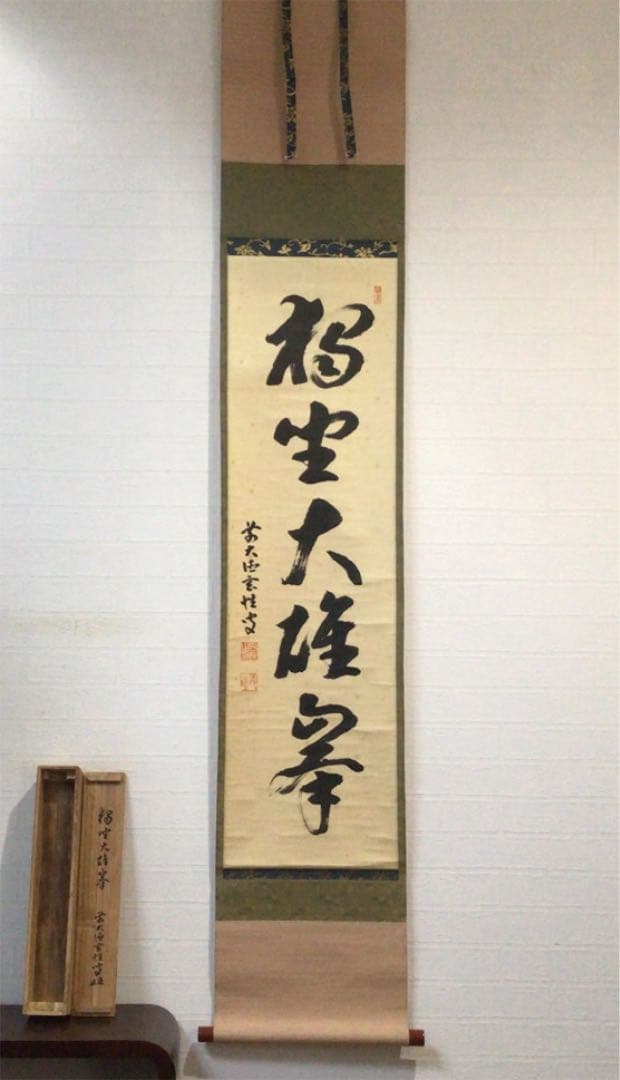 獨坐大雄峯
前大徳玄性叟
獨坐大雄峯
前大徳玄性叟